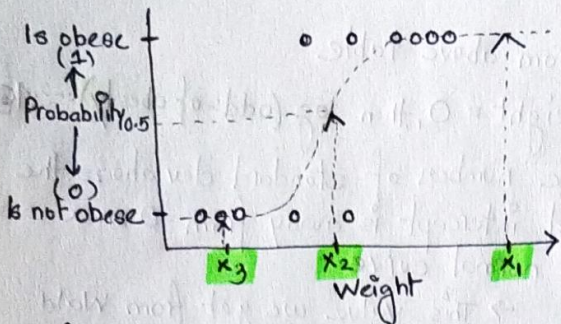 Is obese
(1)
Probability 0.5
(0)
Is not obese
x3 x2 x1
Weight